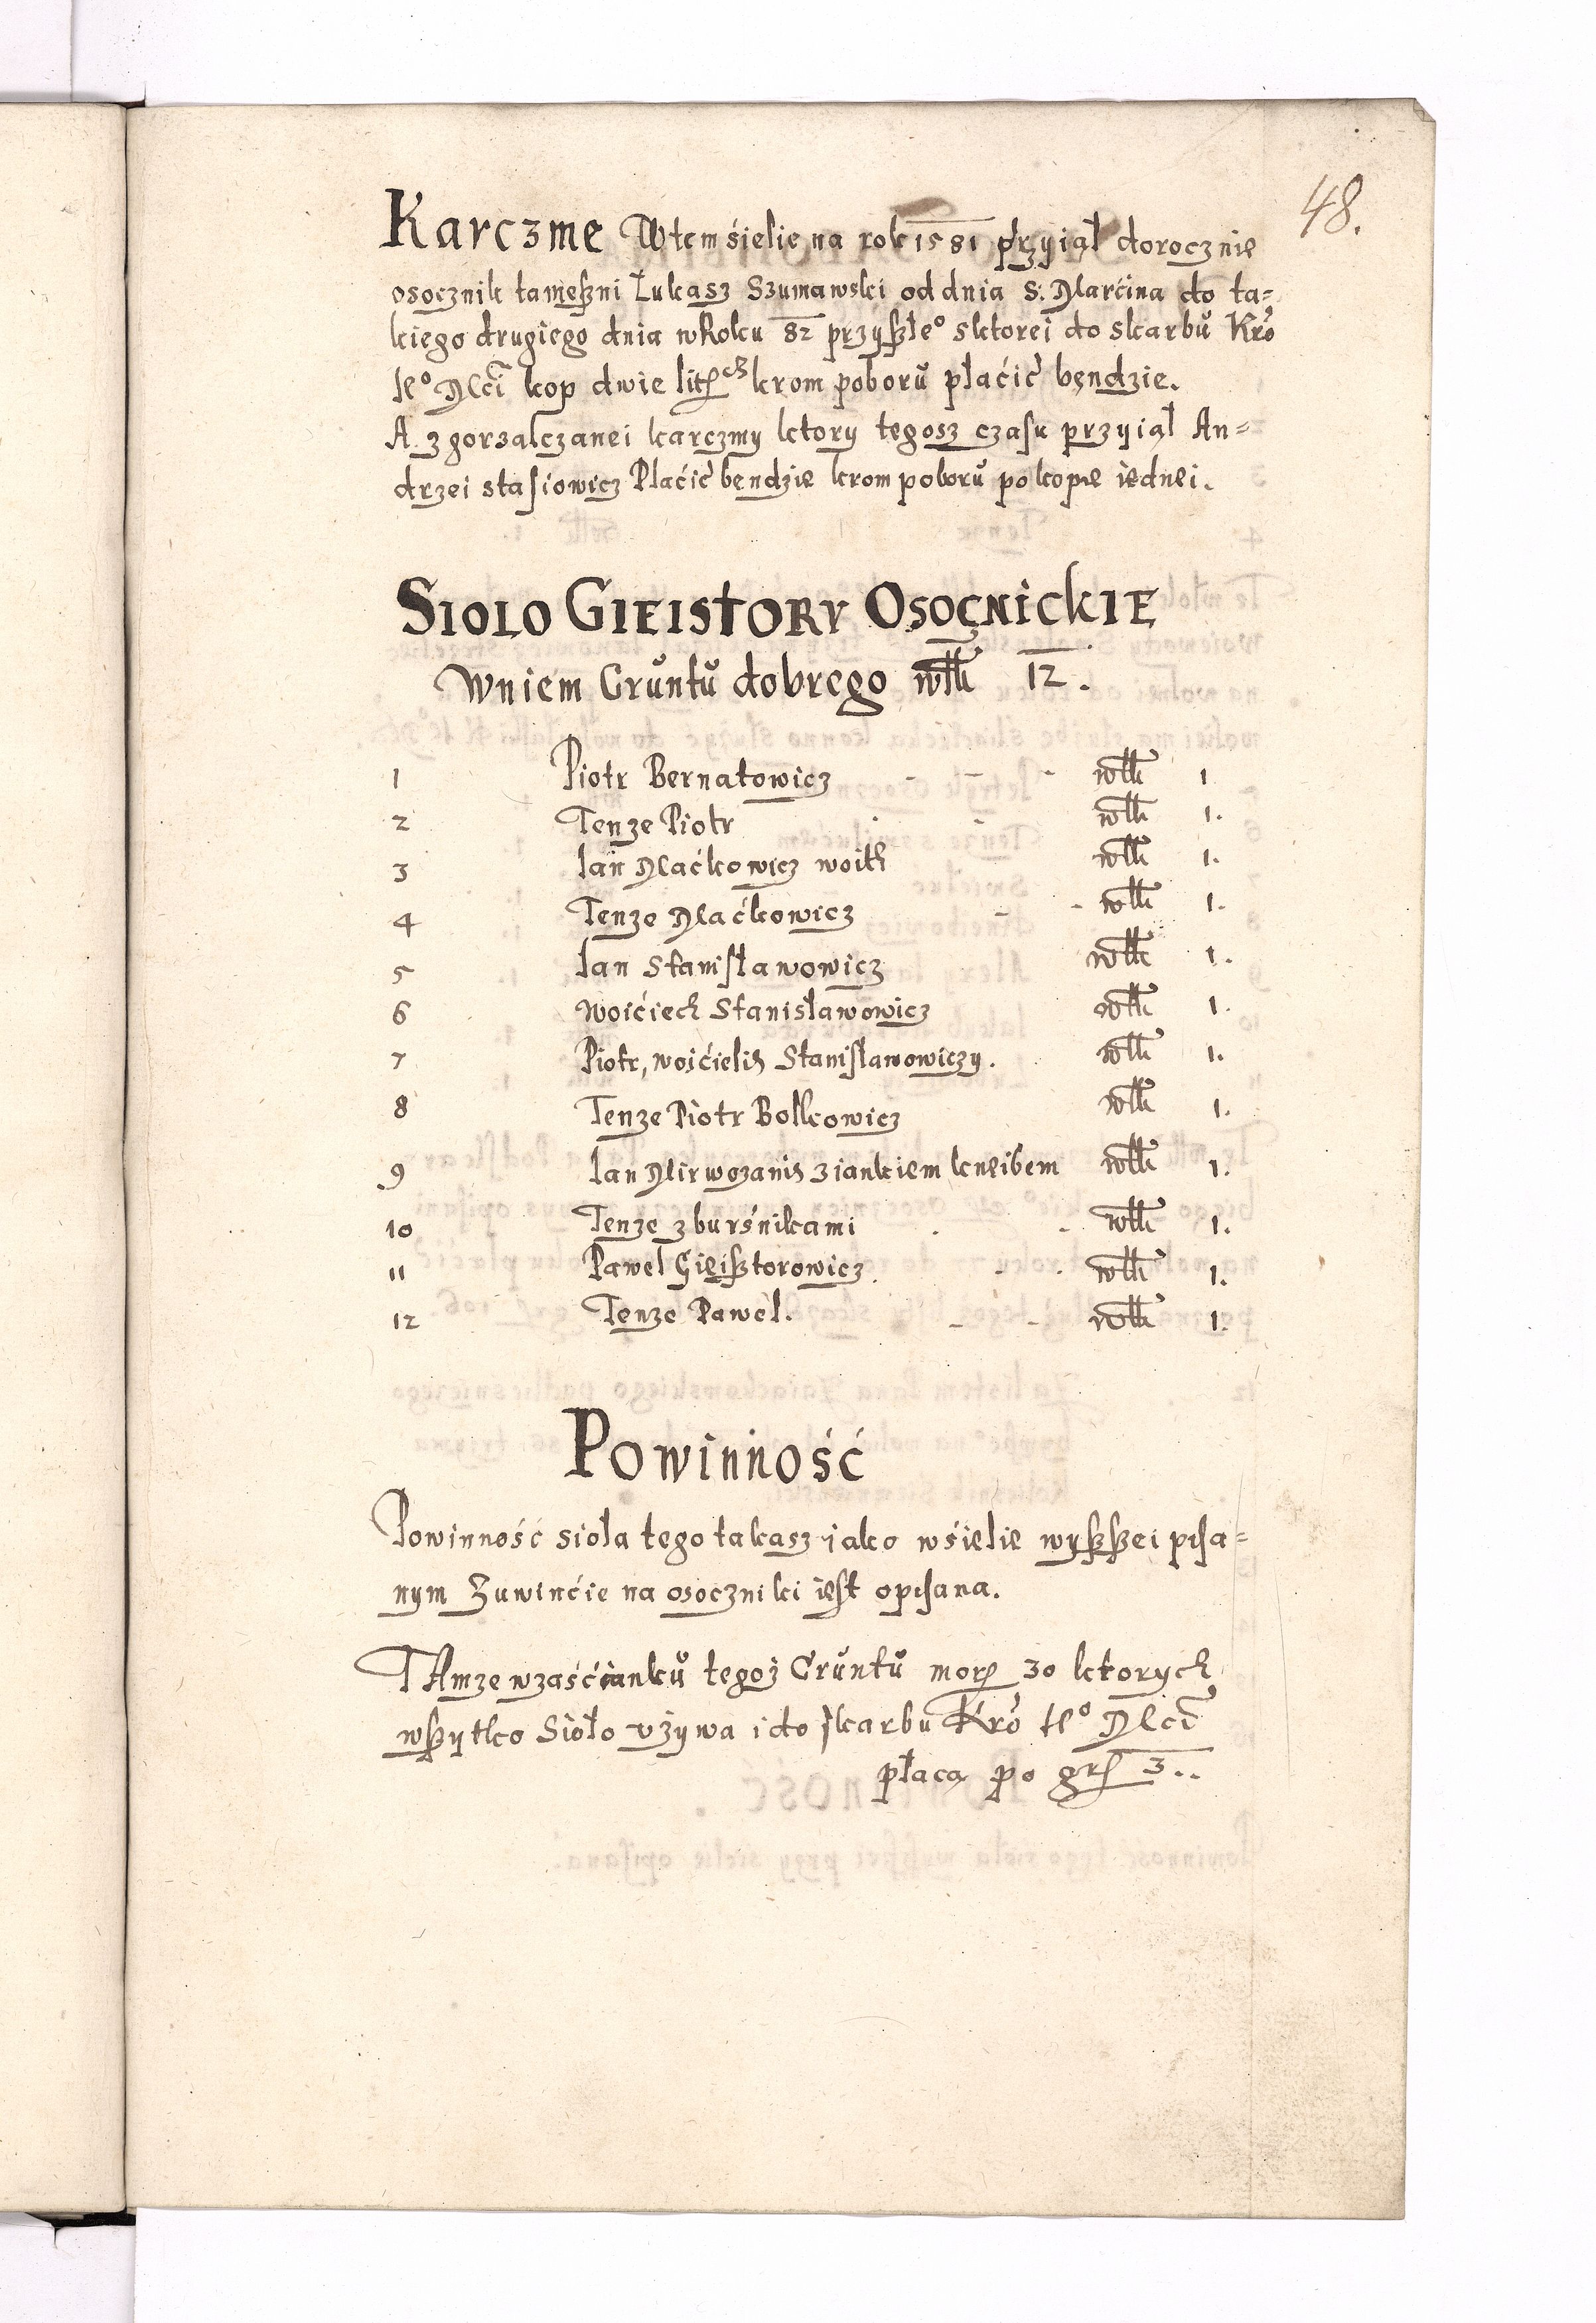 48.
Karczme Wtem sielie na rok 1581 przyiął dorocznie
osocznik tameszni Lukasz Szumawski od dnia S. Marcina do ta=
kiego drugiego dnia w Roku 82 przyszłe° sktorei do skarbu Kro
le° Mći kop dwie lit krom poboru płacić bendzie.
A z gorzalczanei karczmy ktory tegosz czasu przyiął An=
drzei stasiowicz Płacić bendzie krom poboru po kopie iednei.
SIOLO GIEISTORY OSOCNICKIE
Wniem Gruntu dobrego włk 12.
1 Piotr Bernatowicz - - - włk 1.
2 Tenze Piotr włk 1.
3 Ian Maćkowicz woit włk 1.
4 Tenze Maćkowicz - - włk 1.
5 Ian Stanisławowicz włk 1.
6 woićiech Stanisławowicz włk 1.
7 Piotr, woićielis Stanisławowiczy. włk 1.
8 Tenze Piotr Bolkowicz włk 1.
9 Ian Mirwozanis z iankiem kneibem włk 1.
10 Tenze z burśnikami włk 1.
11 Paweł Gieisztorowicz włk 1.
12 Tenze Paweł. - - włk 1.
Powinność
Powinność sioła tego takasz iako w sielie wyszszei pisa=
nym Zuwinćie na osoczniki iest opisana.
TAmze wzaśćianku tegoż Gruntu morg 30 ktorych
wszytko Sioło używa i do skarbu Kro le° Mći
płacą po gr 3..